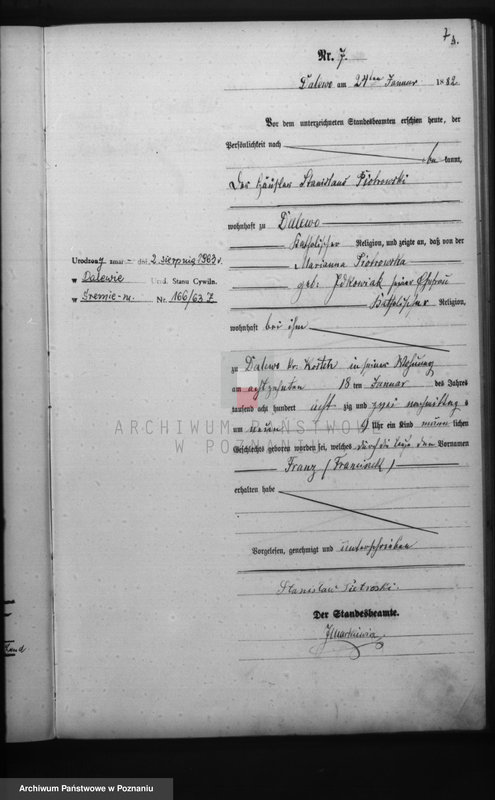 7
Nr. 7.
Dalewo am 24ten Januar 1882
Vor dem unterzeichneten Standesbeamten erschien heute, der
Persönlichkeit nach
be kannt,
Der Häusler Stanislaus Piotrowski
wohnhaft zu Dalewo
katholischer Religion, und zeigte an, daß von der
Marianna Piotrowska
geb: Idkowiak seiner Ehefrau
katholischer Religion,
wohnhaft bei ihm
zu Dalewo Kr. Kosten in seiner Wohnung
am achtzehnten 18 ten Januar des Jahres
tausend acht hundert acht zig und zwei nachmittag s
um neun 9 Uhr ein Kind männ lichen
Geschlechts geboren worden sei, welches den Vornamen
Franz (Franciszek)
erhalten habe
Vorgelesen, genehmigt und unterschrieben
Stanisław Piotroski.
Der Standesbeamte.
Urodzony zmar dni 2 sierpnia 1963 r.
w Dalewie Urd. Stanu Cywiln.
w Śremie-m. Nr. 166/63 Z
ARCHIWUM PAŃSTWOWE
W POZNANIU
Archiwum Państwowe w Poznaniu